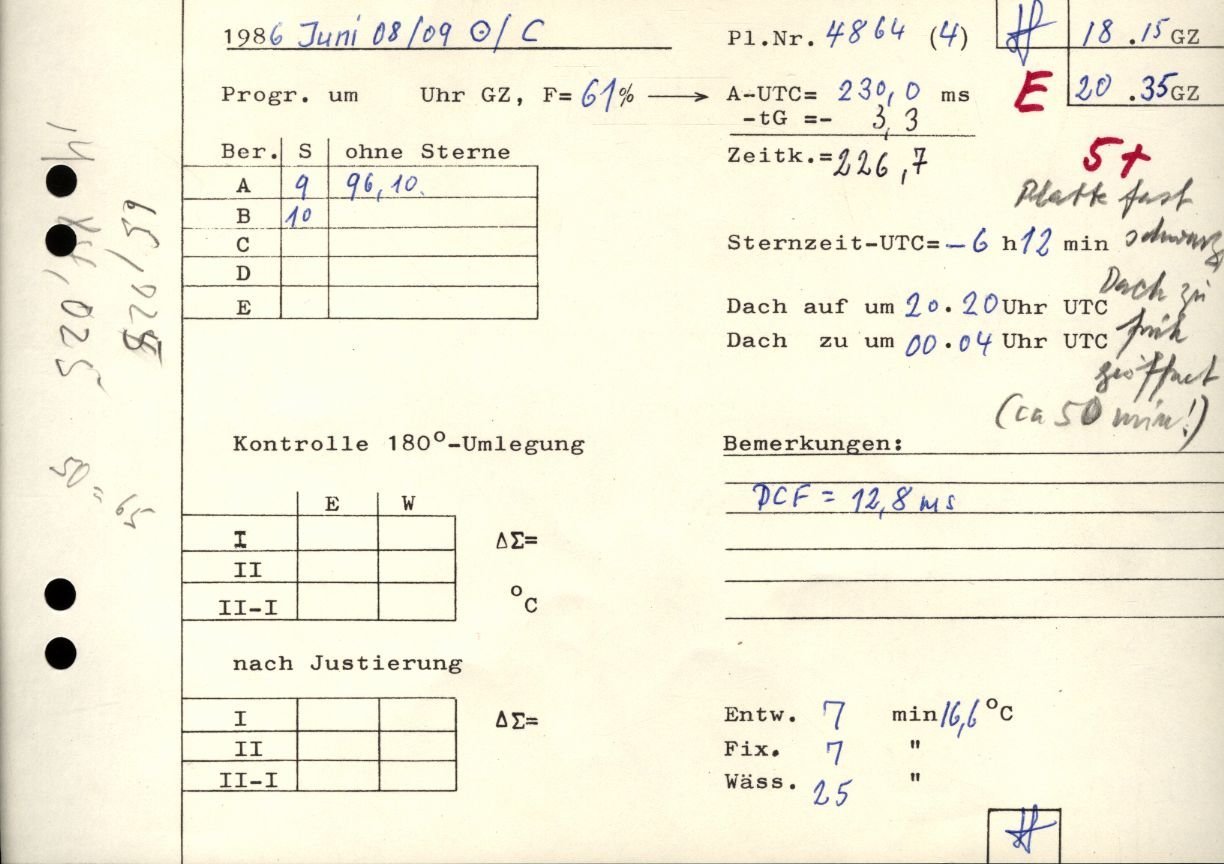 1986 Juni 08/09 ⊙/ C
Pl.Nr. 4864 (4)
18.15 GZ
Progr. um Uhr GZ, F= 61% → A-UTC= 230,0 ms
E
20.35 GZ
-tG =- 3,3
Zeitk.= 226,7
5+
Ber. S ohne Sterne
A 9 96, 10.
B 10
C
D
E
Platte fast
schwarz
Sternzeit-UTC= -6 h 12 min
Dach zu
früh
geöffnet
(ca 50 min!)
Dach auf um 20.20 Uhr UTC
Dach zu um 00.04 Uhr UTC
Kontrolle 180°-Umlegung
E W
I ΔΣ=
II
II-I °C
nach Justierung
I ΔΣ=
II
II-I
Bemerkungen:
DCF = 12,8 ms
Entw. 7 min 16,6 °C
Fix. 7 "
Wäss. 25 "
50 = 65